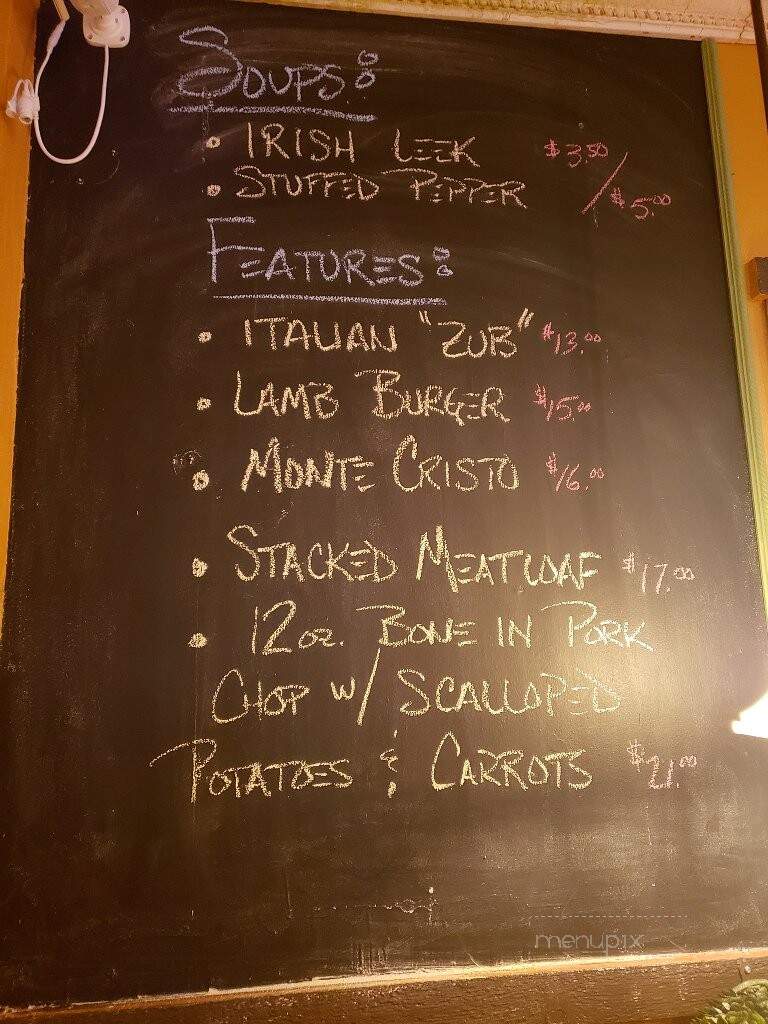 SOUPS:
• IRISH LEEK $3.50
• STUFFED PEPPER / $5.00
FEATURES:
• ITALIAN "ZUB" $13.00
• LAMB BURGER $15.00
• MONTE CRISTO $16.00
• STACKED MEATLOAF $17.00
• 12oz. BONE IN PORK
CHOP w/ SCALLOPED
POTATOES & CARROTS $21.00
menupix